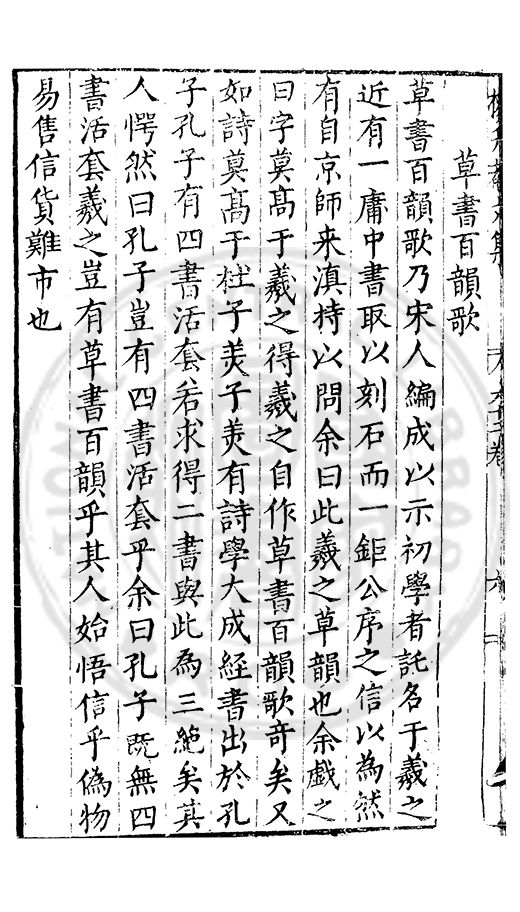 草書百韻歌
草書百韻歌乃宋人編成以示初學者託名于羲之
近有一庸中書取以刻石而一鉅公序之信以為然
有自京師来滇持以問余曰此羲之草韻也余戲之
曰字莫髙于羲之得羲之自作草書百韻歌奇矣又
如詩莫髙于杜子羙子羙有詩學大成経書出於孔
子孔子有四書活套若求得二書與此為三絶矣其
人愕然曰孔子豈有四書活套乎余曰孔子既無四
書活套羲之豈有草書百韻乎其人始悟信乎偽物
易售信貨難市也